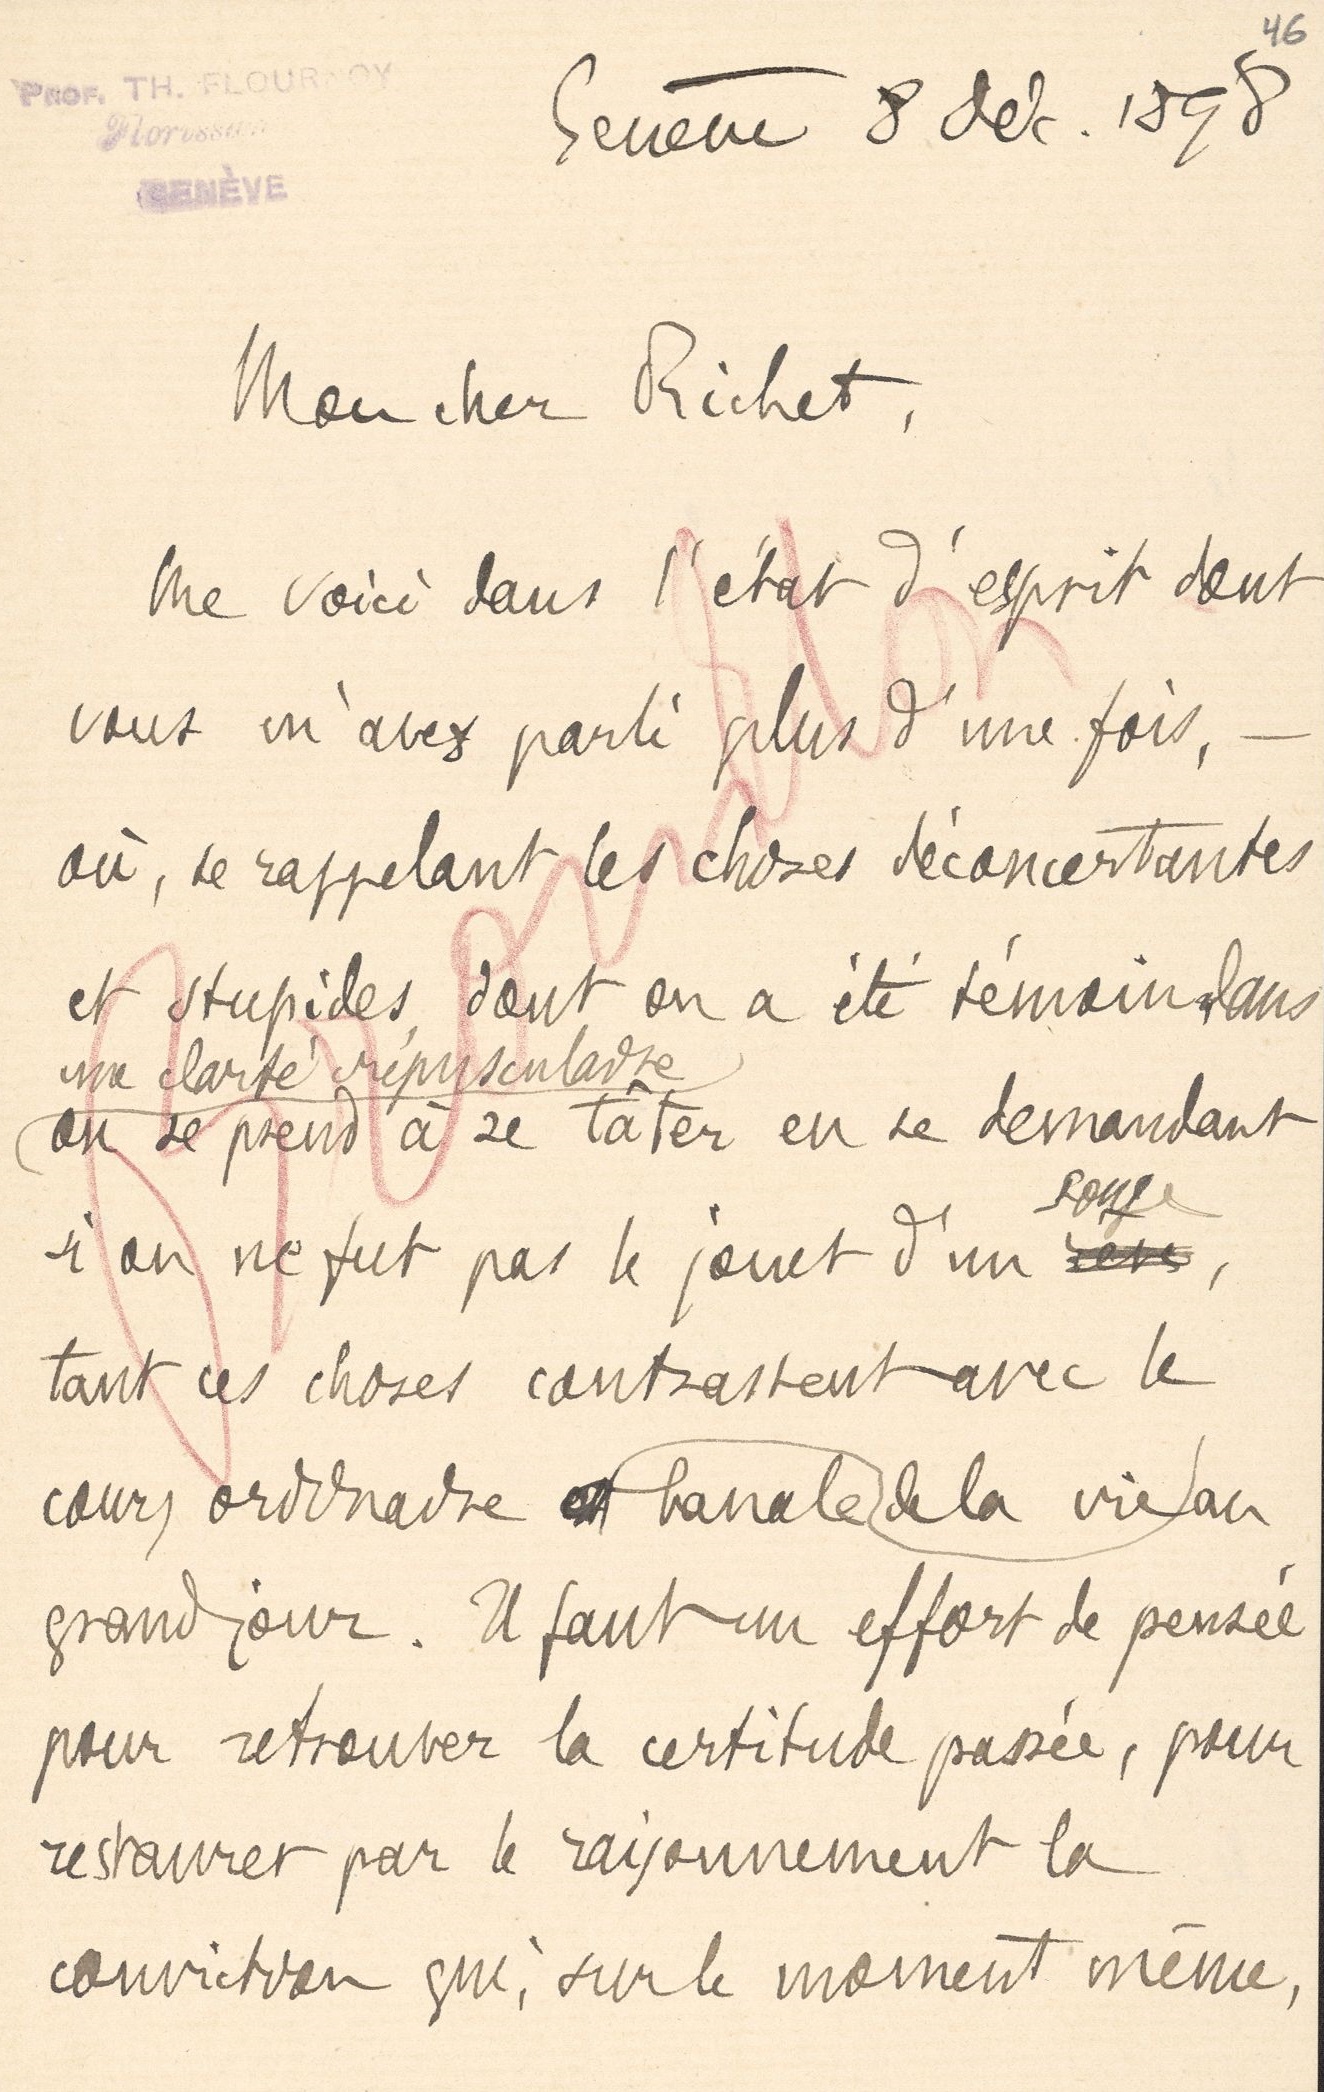 46
PROF. TH. FLOURNOY
Florissant
GENÈVE
Genève 8 déc. 1898
Mon cher Richet,
Me voici dans l'état d'esprit dont
vous m'avez parlé plus d'une fois, —
où, se rappelant les choses déconcertantes
et stupides, dont on a été témoin dans
une clarté crépusculaire
on se prend à se tâter en se demandant
si on ne fut pas le jouet d'un songe
rêve,
tant ces choses contrastent avec le
cours ordinaire et banale de la vie au
grand jour. Il faut un effort de pensée
pour retrouver la certitude passée, pour
restaurer par le raisonnement la
conviction qui, sur le moment même,